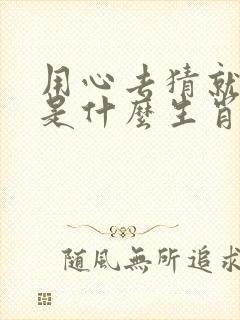 用心去猜就
是什麼生肖
隨風無所追求